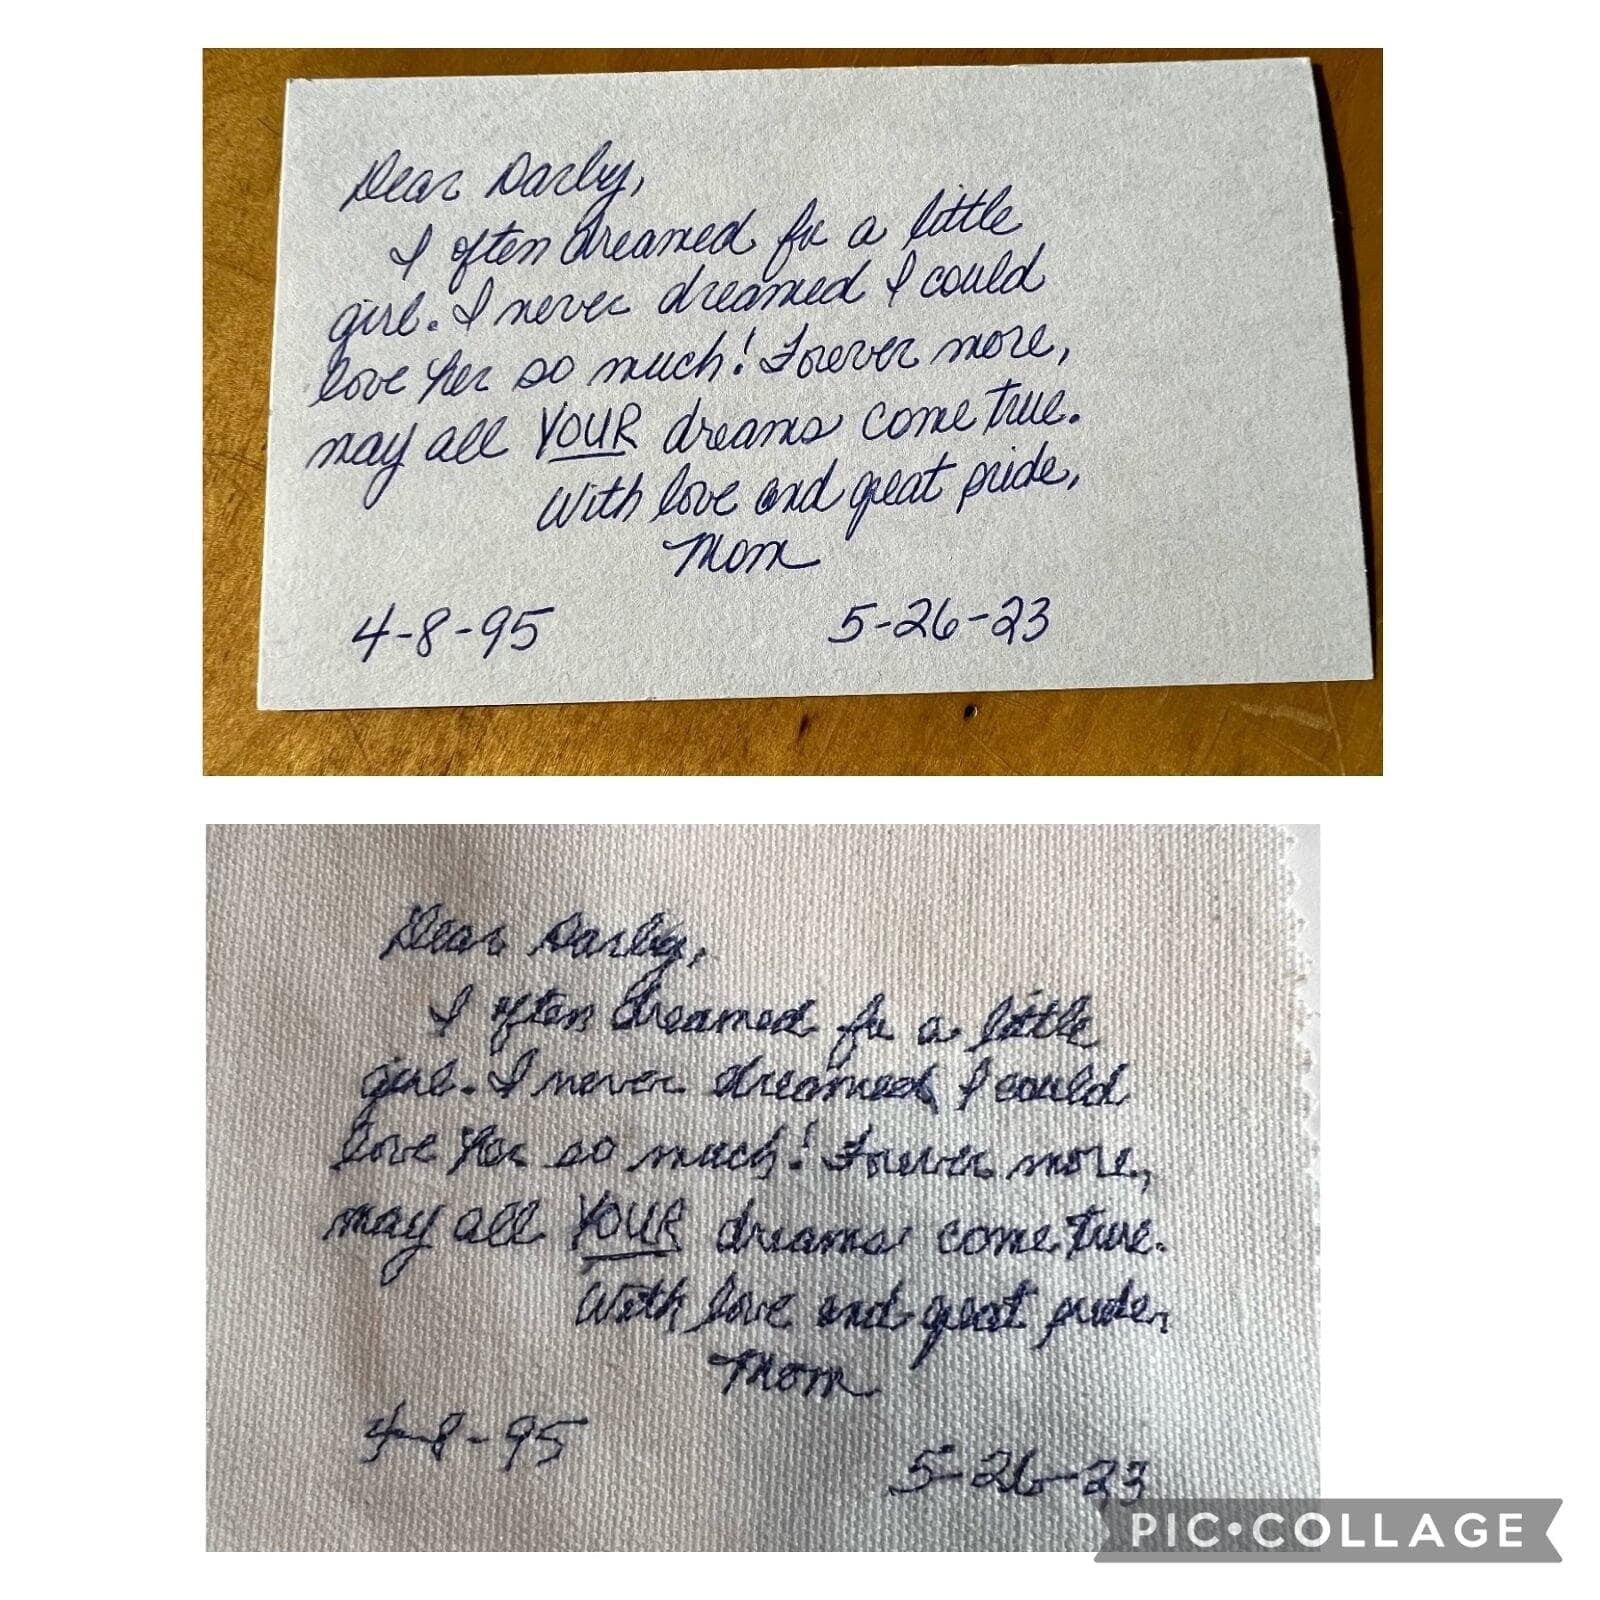 Dear Darby,
I often dreamed for a little
girl. I never dreamed I could
love her so much! Forever more,
may all YOUR dreams come true.
With love and great pride,
Mom
4-8-95 5-26-23
Dear Darby,
I often dreamed for a little
girl. I never dreamed I could
love her so much! Forever more,
may all YOUR dreams come true.
With love and great pride,
Mom
4-8-95
5-26-23
PIC•COLLAGE